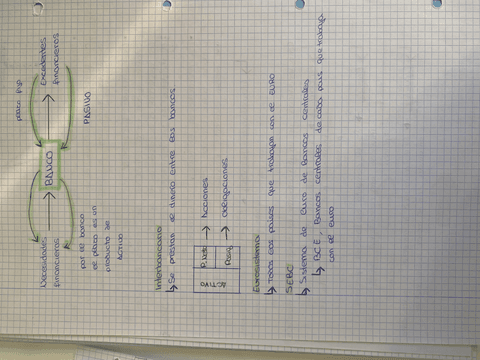 Necesidades financieros → BANCO → Excedentes financieros
por el banco
el plazo es un
producto de
Activo
PASIVO
Interbancario
↳ Se prestan de dinero entre los bancos
ACTIVO
P. Neto → Acciones
Pasivo → Obligaciones
Eurosistema
↳ Todos los paises que trabajan con el EURO
SEBC
↳ Sistema de Euro de Bancos Centrales
↳ BCE, Bancos centrales de cada pais que trabaja
con el euro